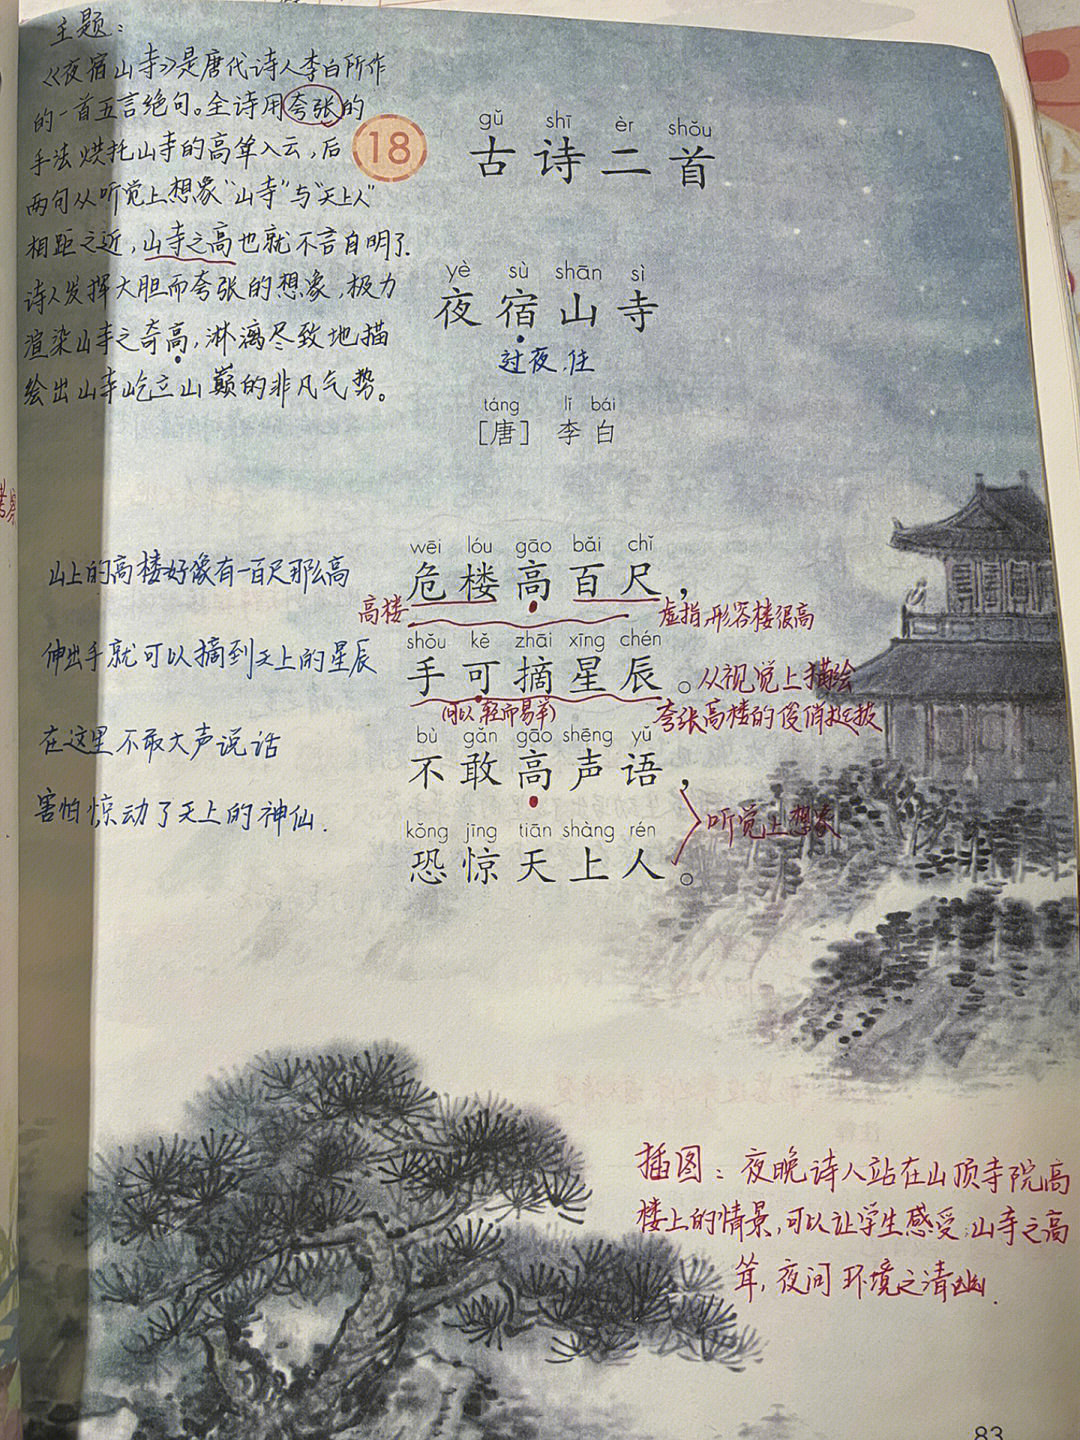 主题：
《夜宿山寺》是唐代诗人李白所作
的一首五言绝句。全诗用夸张的
手法烘托山寺的高耸入云，后
两句从听觉上想象“山寺”与“天上人”
相距之近，山寺之高也就不言自明了.
诗人发挥大胆而夸张的想象，极力
渲染山寺之奇高，淋漓尽致地描
绘出山寺屹立山巅的非凡气势。
18
gǔ shī èr shǒu
古诗二首
yè sù shān sì
夜宿山寺
过夜，住
táng lǐ bái
［唐］ 李白
wēi lóu gāo bǎi chǐ
危楼高百尺，
山上的高楼好像有一百尺那么高
高楼
虚指，形容楼很高
shǒu kě zhāi xīng chén
手可摘星辰。
伸出手就可以摘到天上的星辰
(可以，轻而易举)
从视觉上描绘
夸张高楼的俊俏挺拔
bù gǎn gāo shēng yǔ
不敢高声语，
在这里不敢大声说话
kǒng jīng tiān shàng rén
恐惊天上人。
害怕惊动了天上的神仙.
听觉上想象
插图：夜晚诗人站在山顶寺院高
楼上的情景，可以让学生感受，山寺之高
耸，夜间环境之清幽.
83